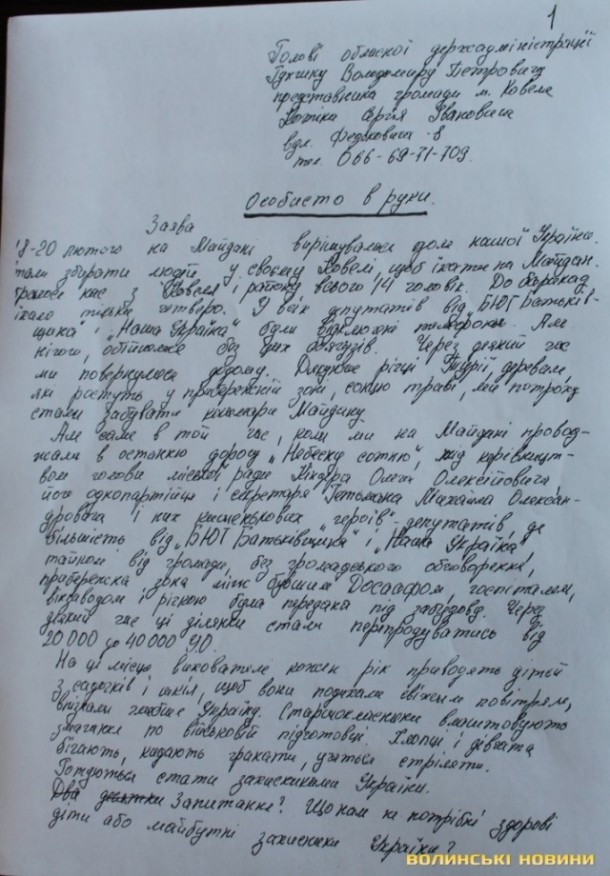 1
Голові обласної держадміністрації
Гунчику Володимиру Петровичу
представника громади м. Ковеля
Сергія Івановича
вул. Федьковича 8
тел. 066-69-71-709.
Особисто в руки.
Заява
18-20 лютого на Майдані вирішувалася доля нашої України.
Стали збирати людей у своєму Ковелі, щоб їхати на Майдан.
нас з Ковеля і району всього 14 чоловік. До барикад
їхало тільки четверо. У всіх депутатів від „БЮТ Батьків-
щина" і „Наша Україна" були відключені телефони. Але
нічого, обійшлося без цих боягузів. Через деякий час
ми повернулися додому. Дякуючи річці Турії, деревам,
які ростуть у прибережній зоні, сонцю, траві, ми потроху
стали забувати кошмари Майдану.
Але саме в той час, коли ми на Майдані провод-
жали в останню дорогу „Небесну сотню", під керівницт-
вом голови міської ради Кіндера Олега Олексійовича,
його однопартійця і секретаря Гетьмана Михайла Олексан-
дровича і них кишенькових „героїв"-депутатів, де
більшість від „БЮТ Батьківщина" і „Наша Україна"
тайком від громади, без громадського обговорення,
прибережна зона між бувшим Досаафом, госпіталем,
і річкою була передана під забудову. Через
деякий час ці ділянки стали перепродуватись від
20 000 до 40 000 У.О.
На ці місця вихователі кожен рік приводять дітей
з садочків і шкіл, щоб вони подихали свіжим повітрям,
пізнали глибше Україну. Старшокласники влаштовують
змагання по військовій підготовці. Хлопці і дівчата
бігають, кидають гранати, учаться стріляти.
Готуються стати захисниками України.
Два Запитання? Що нам не потрібні здорові
діти або майбутні захисники України?
ВОЛИНСЬКІ НОВИНИ